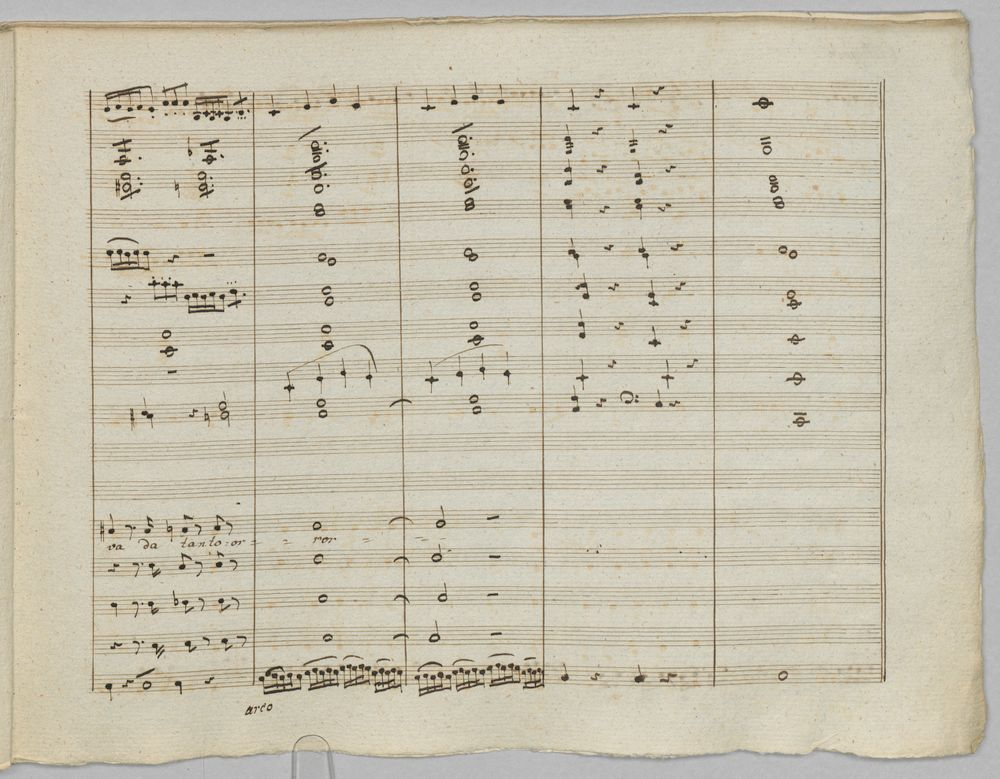 va da tanto or - - ror - - - -
arco